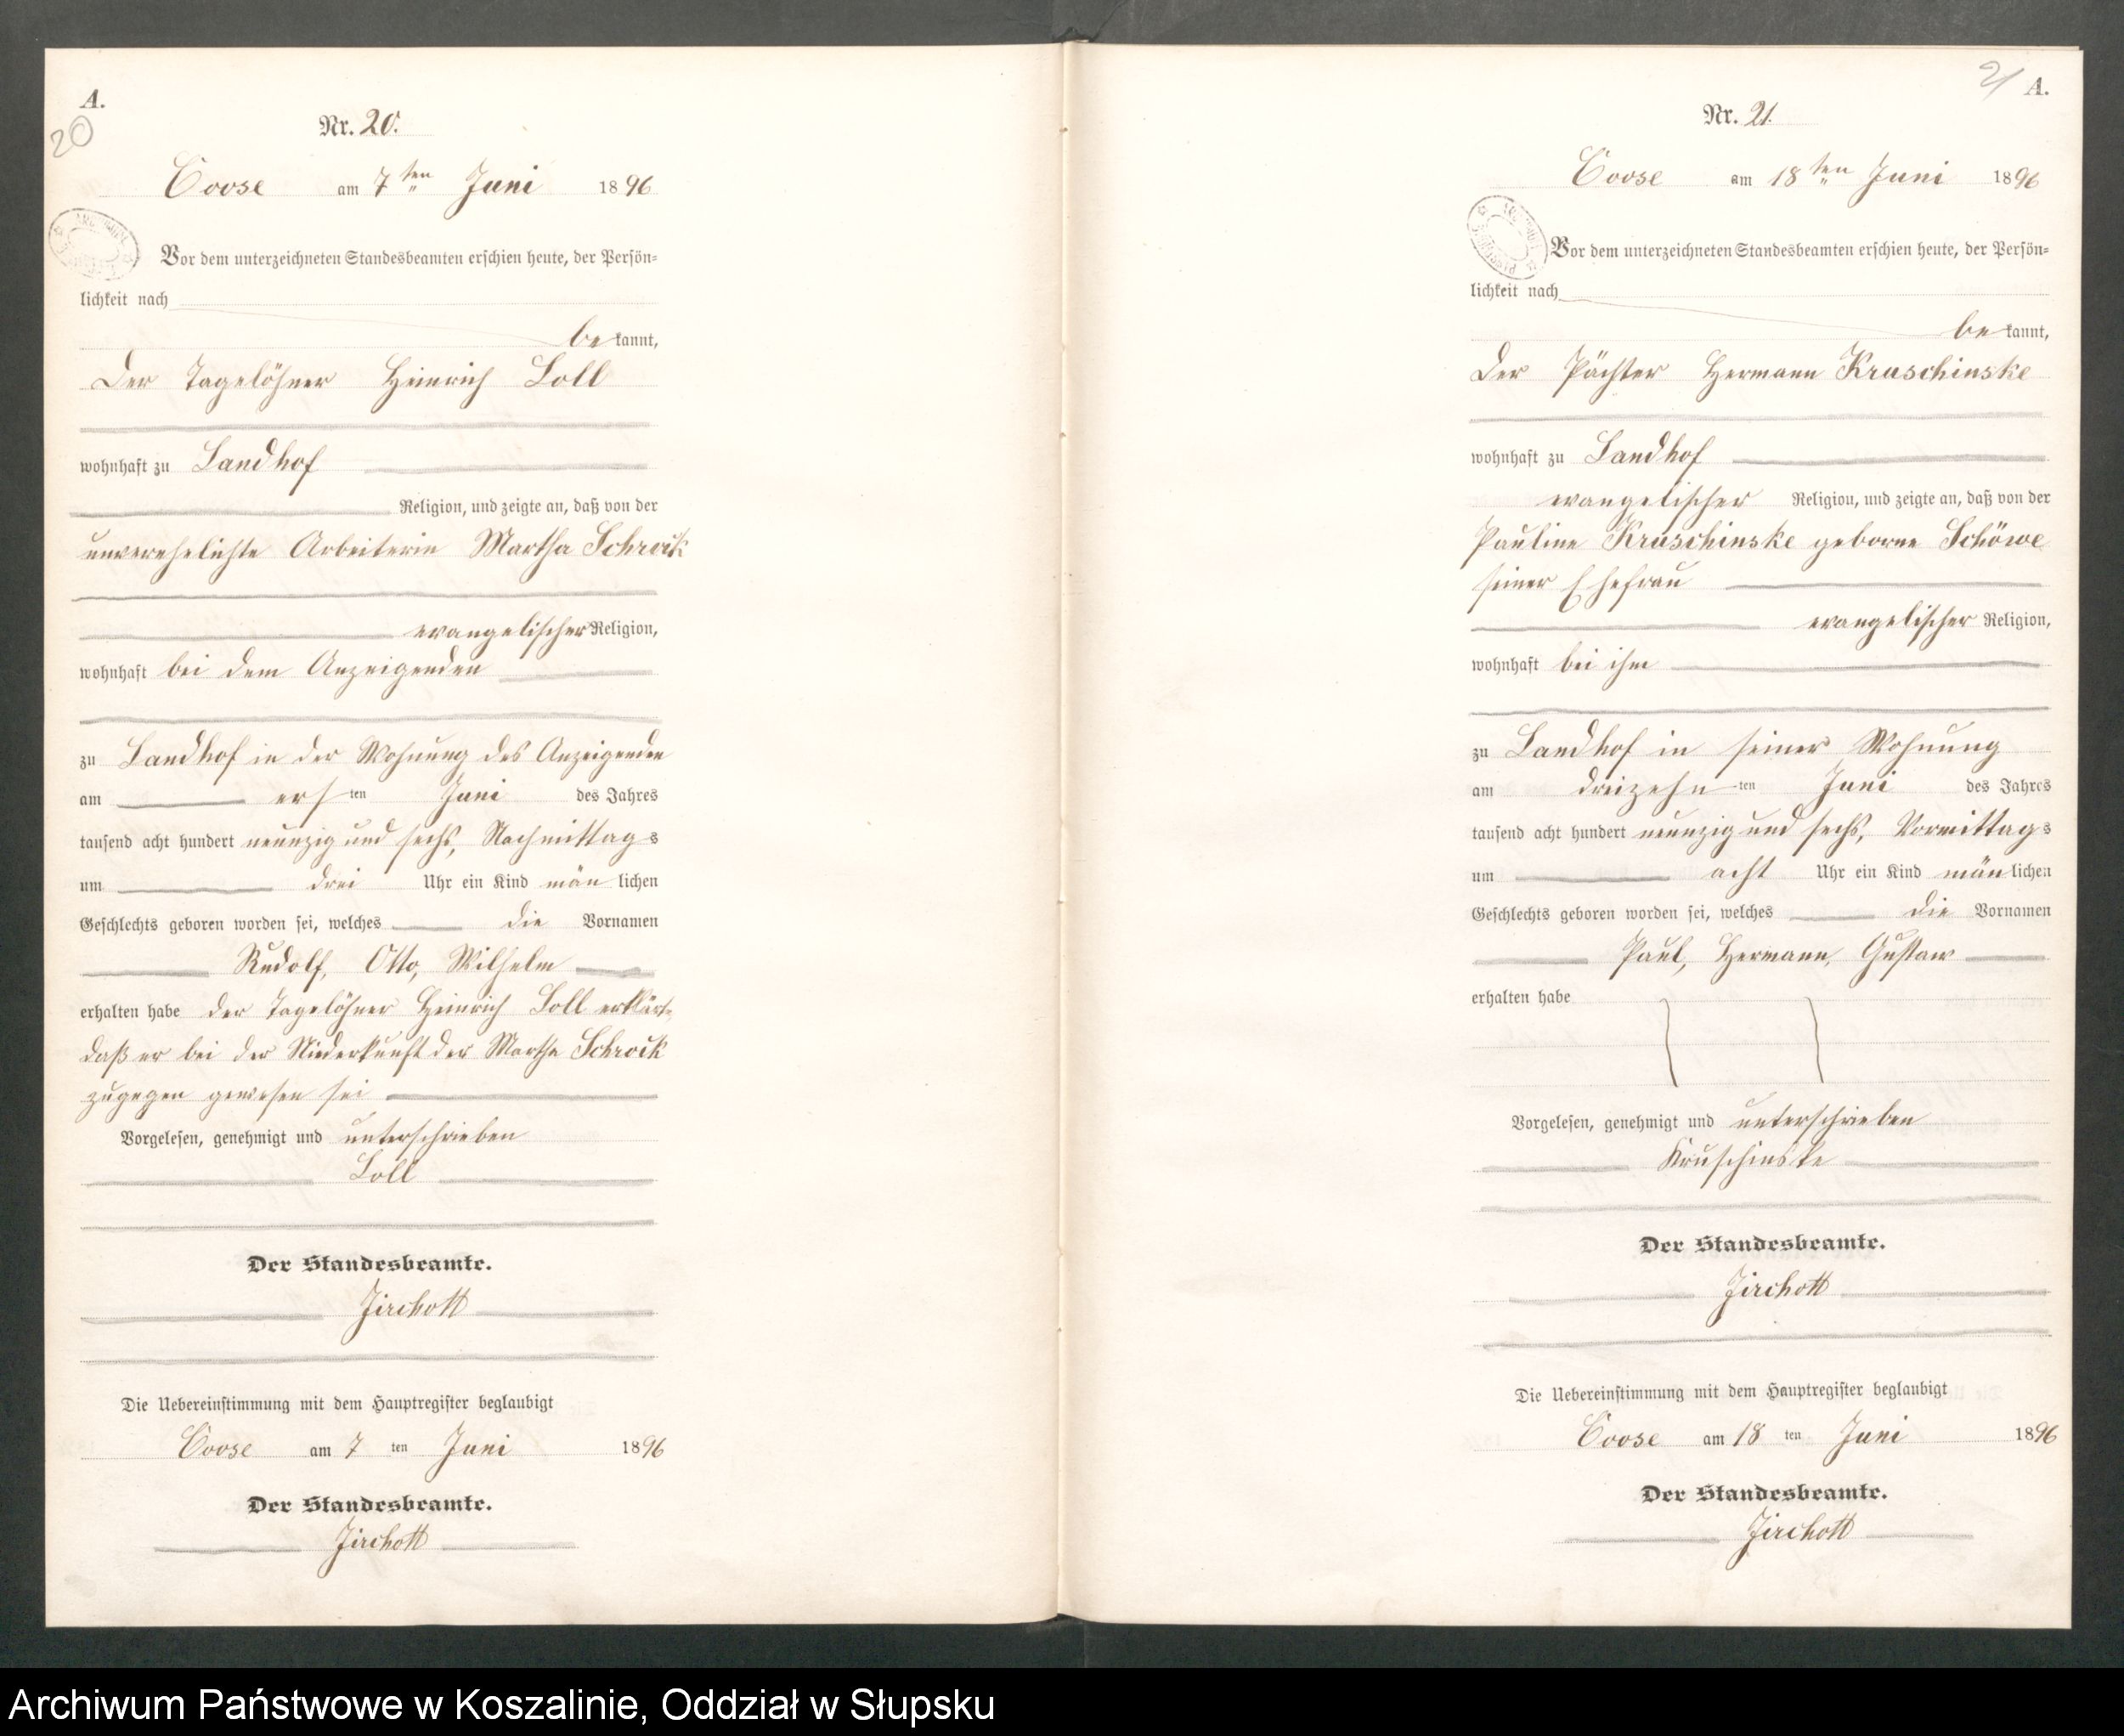 A.
20
Nr. 20.
Coose am 7ten Juni 1896
Vor dem unterzeichneten Standesbeamten erschien heute, der Persön-
lichkeit nach
bekannt,
Der Tagelöhner Heinrich Loll
wohnhaft zu Landhof
Religion, und zeigte an, daß von der
unverehelichte Arbeiterin Martha Schrock
evangelischer Religion,
wohnhaft bei dem Anzeigenden
zu Landhof in der Wohnung des Anzeigenden
am ersten Juni des Jahres
tausend acht hundert neunzig und sechs, Nachmittags
um drei Uhr ein Kind mänlichen
Geschlechts geboren worden sei, welches die Vornamen
Rudolf, Otto, Wilhelm
erhalten habe der Tagelöhner Heinrich Loll erklärt
daß er bei der Niederkunft der Martha Schrock
zugegen gewesen sei
Vorgelesen, genehmigt und unterschrieben
Loll
Der Standesbeamte.
Zirchott
Die Uebereinstimmung mit dem Hauptregister beglaubigt
Coose am 7 ten Juni 1896
Der Standesbeamte.
Zirchott
21
A.
Nr. 21.
Coose am 18ten Juni 1896
Vor dem unterzeichneten Standesbeamten erschien heute, der Persön-
lichkeit nach
bekannt,
Der Pächter Hermann Kruschinske
wohnhaft zu Landhof
evangelischer Religion, und zeigte an, daß von der
Pauline Kruschinske geborne Schöwe
seiner Ehefrau
evangelischer Religion,
wohnhaft bei ihm
zu Landhof in seiner Wohnung
am dreizehnten Juni des Jahres
tausend acht hundert neunzig und sechs, Vormittags
um acht Uhr ein Kind mänlichen
Geschlechts geboren worden sei, welches die Vornamen
Paul, Hermann, Gustav
erhalten habe
Vorgelesen, genehmigt und unterschrieben
Kruschinske
Der Standesbeamte.
Zirchott
Die Uebereinstimmung mit dem Hauptregister beglaubigt
Coose am 18 ten Juni 1896
Der Standesbeamte.
Zirchott
Archiwum Państwowe w Koszalinie, Oddział w Słupsku